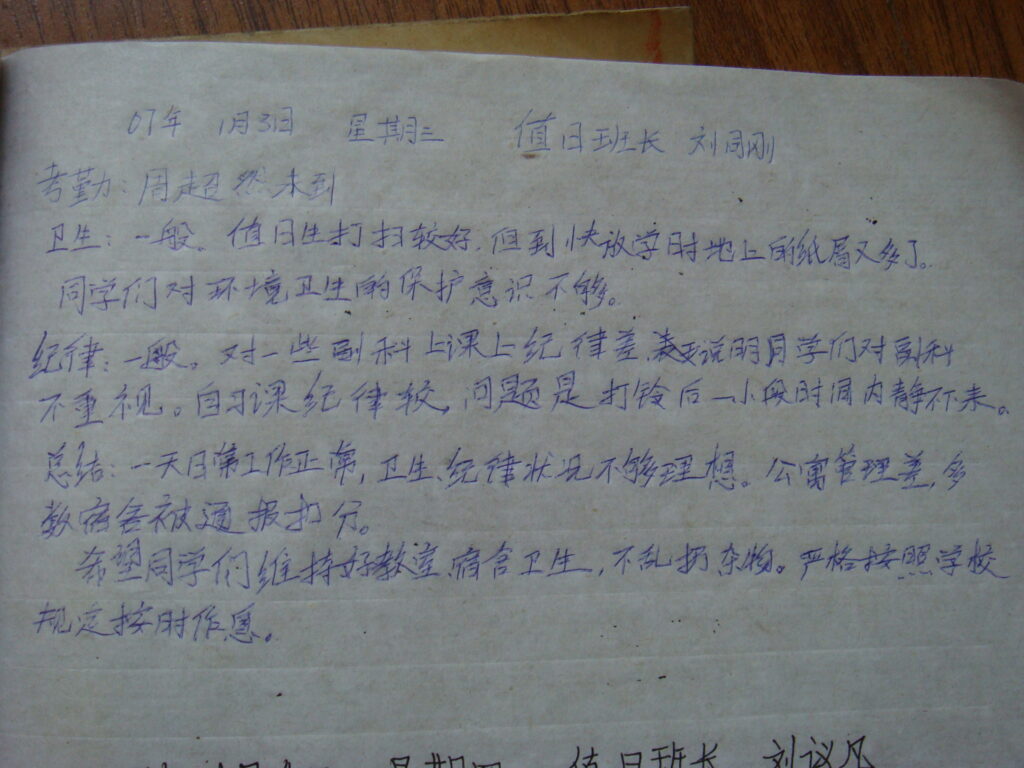 07年 1月31日 星期三 值日班长 刘同刚
考勤: 周超然未到
卫生: 一般。值日生打扫较好.但到快放学时地上的纸屑又多了。
同学们对环境卫生的保护意识不够。
纪律: 一般。对一些副科上课上纪律差.表现说明同学们对副科
不重视。自习课纪律较,问题是打铃后一小段时间内静不下来。
总结: 一天日常工作正常,卫生、纪律状况不够理想。公寓管理差,多
数宿舍被通报扣分。
希望同学们维持好教室、宿舍卫生,不乱扔杂物。严格按照学校
规定按时作息。
星期四 值日班长 刘议凡